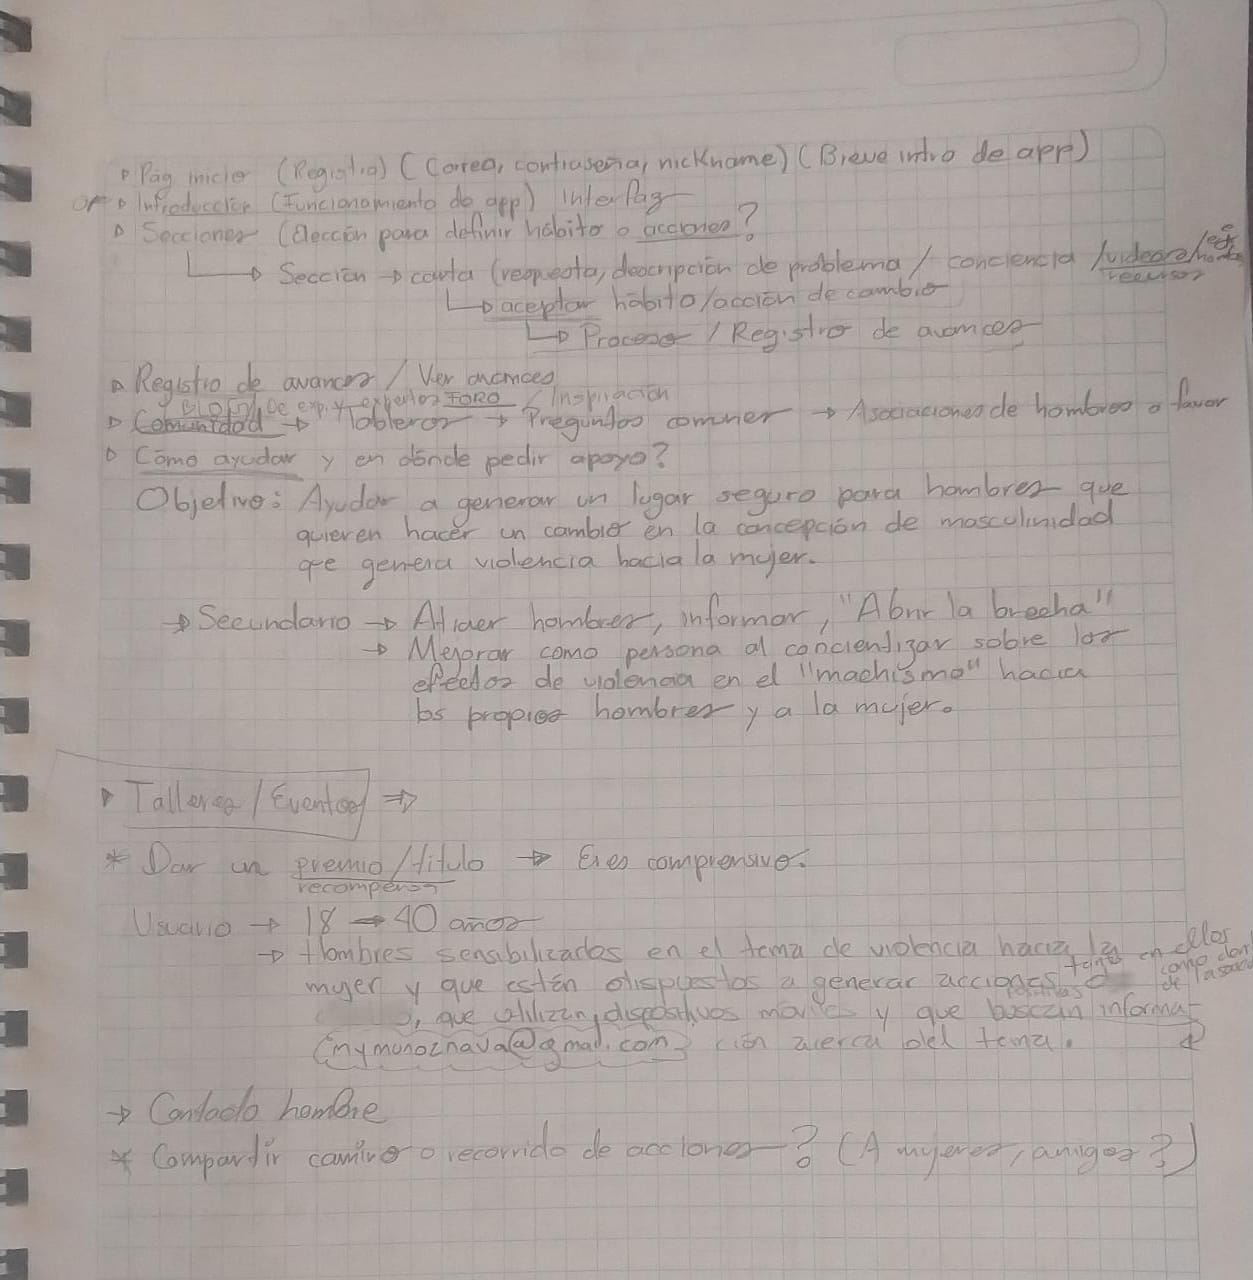 Pág inicio (Registro) (Correo, contraseña, nickname) (Breve intro de app)
Introducción (Funcionamiento de app) Interfaz
Secciones (Elección para definir hábito o acciones?
Sección → carta (respuesta, descripción de problema / conciencia / videos
recursos
aceptar hábito/acción de cambio
Proceso / Registro de avances
Registro de avances / Ver avances
BLOG De exp. y expertos FORO / Inspiración
Comunidad → Tableros → Preguntas comunes → Asociaciones de hombres a favor
Cómo ayudar y en dónde pedir apoyo?
Objetivo: Ayudar a generar un lugar seguro para hombres que
quieren hacer un cambio en la concepción de masculinidad
que genera violencia hacia la mujer.
→ Secundario → Atraer hombres, informar, "Abrir la brecha"
→ Mejorar como persona al concientizar sobre los
efectos de violencia en el "machismo" hacia
los propios hombres y a la mujer.
Talleres / Eventos ⇒
* Dar un premio/título → Eres comprensivo.
recompensa
Usuario → 18 → 40 años
→ Hombres sensibilizados en el tema de violencia hacia la
mujer y que estén dispuestos a generar acciones tanto en ellos como
de
, que utilizen dispositivos moviles y que buscan informa-
(nymunoznava@gmail.com) ción acerca del tema.
→ Contacto hombre
* Compartir camino o recorrido de acciones? (A mujeres, amigos?)